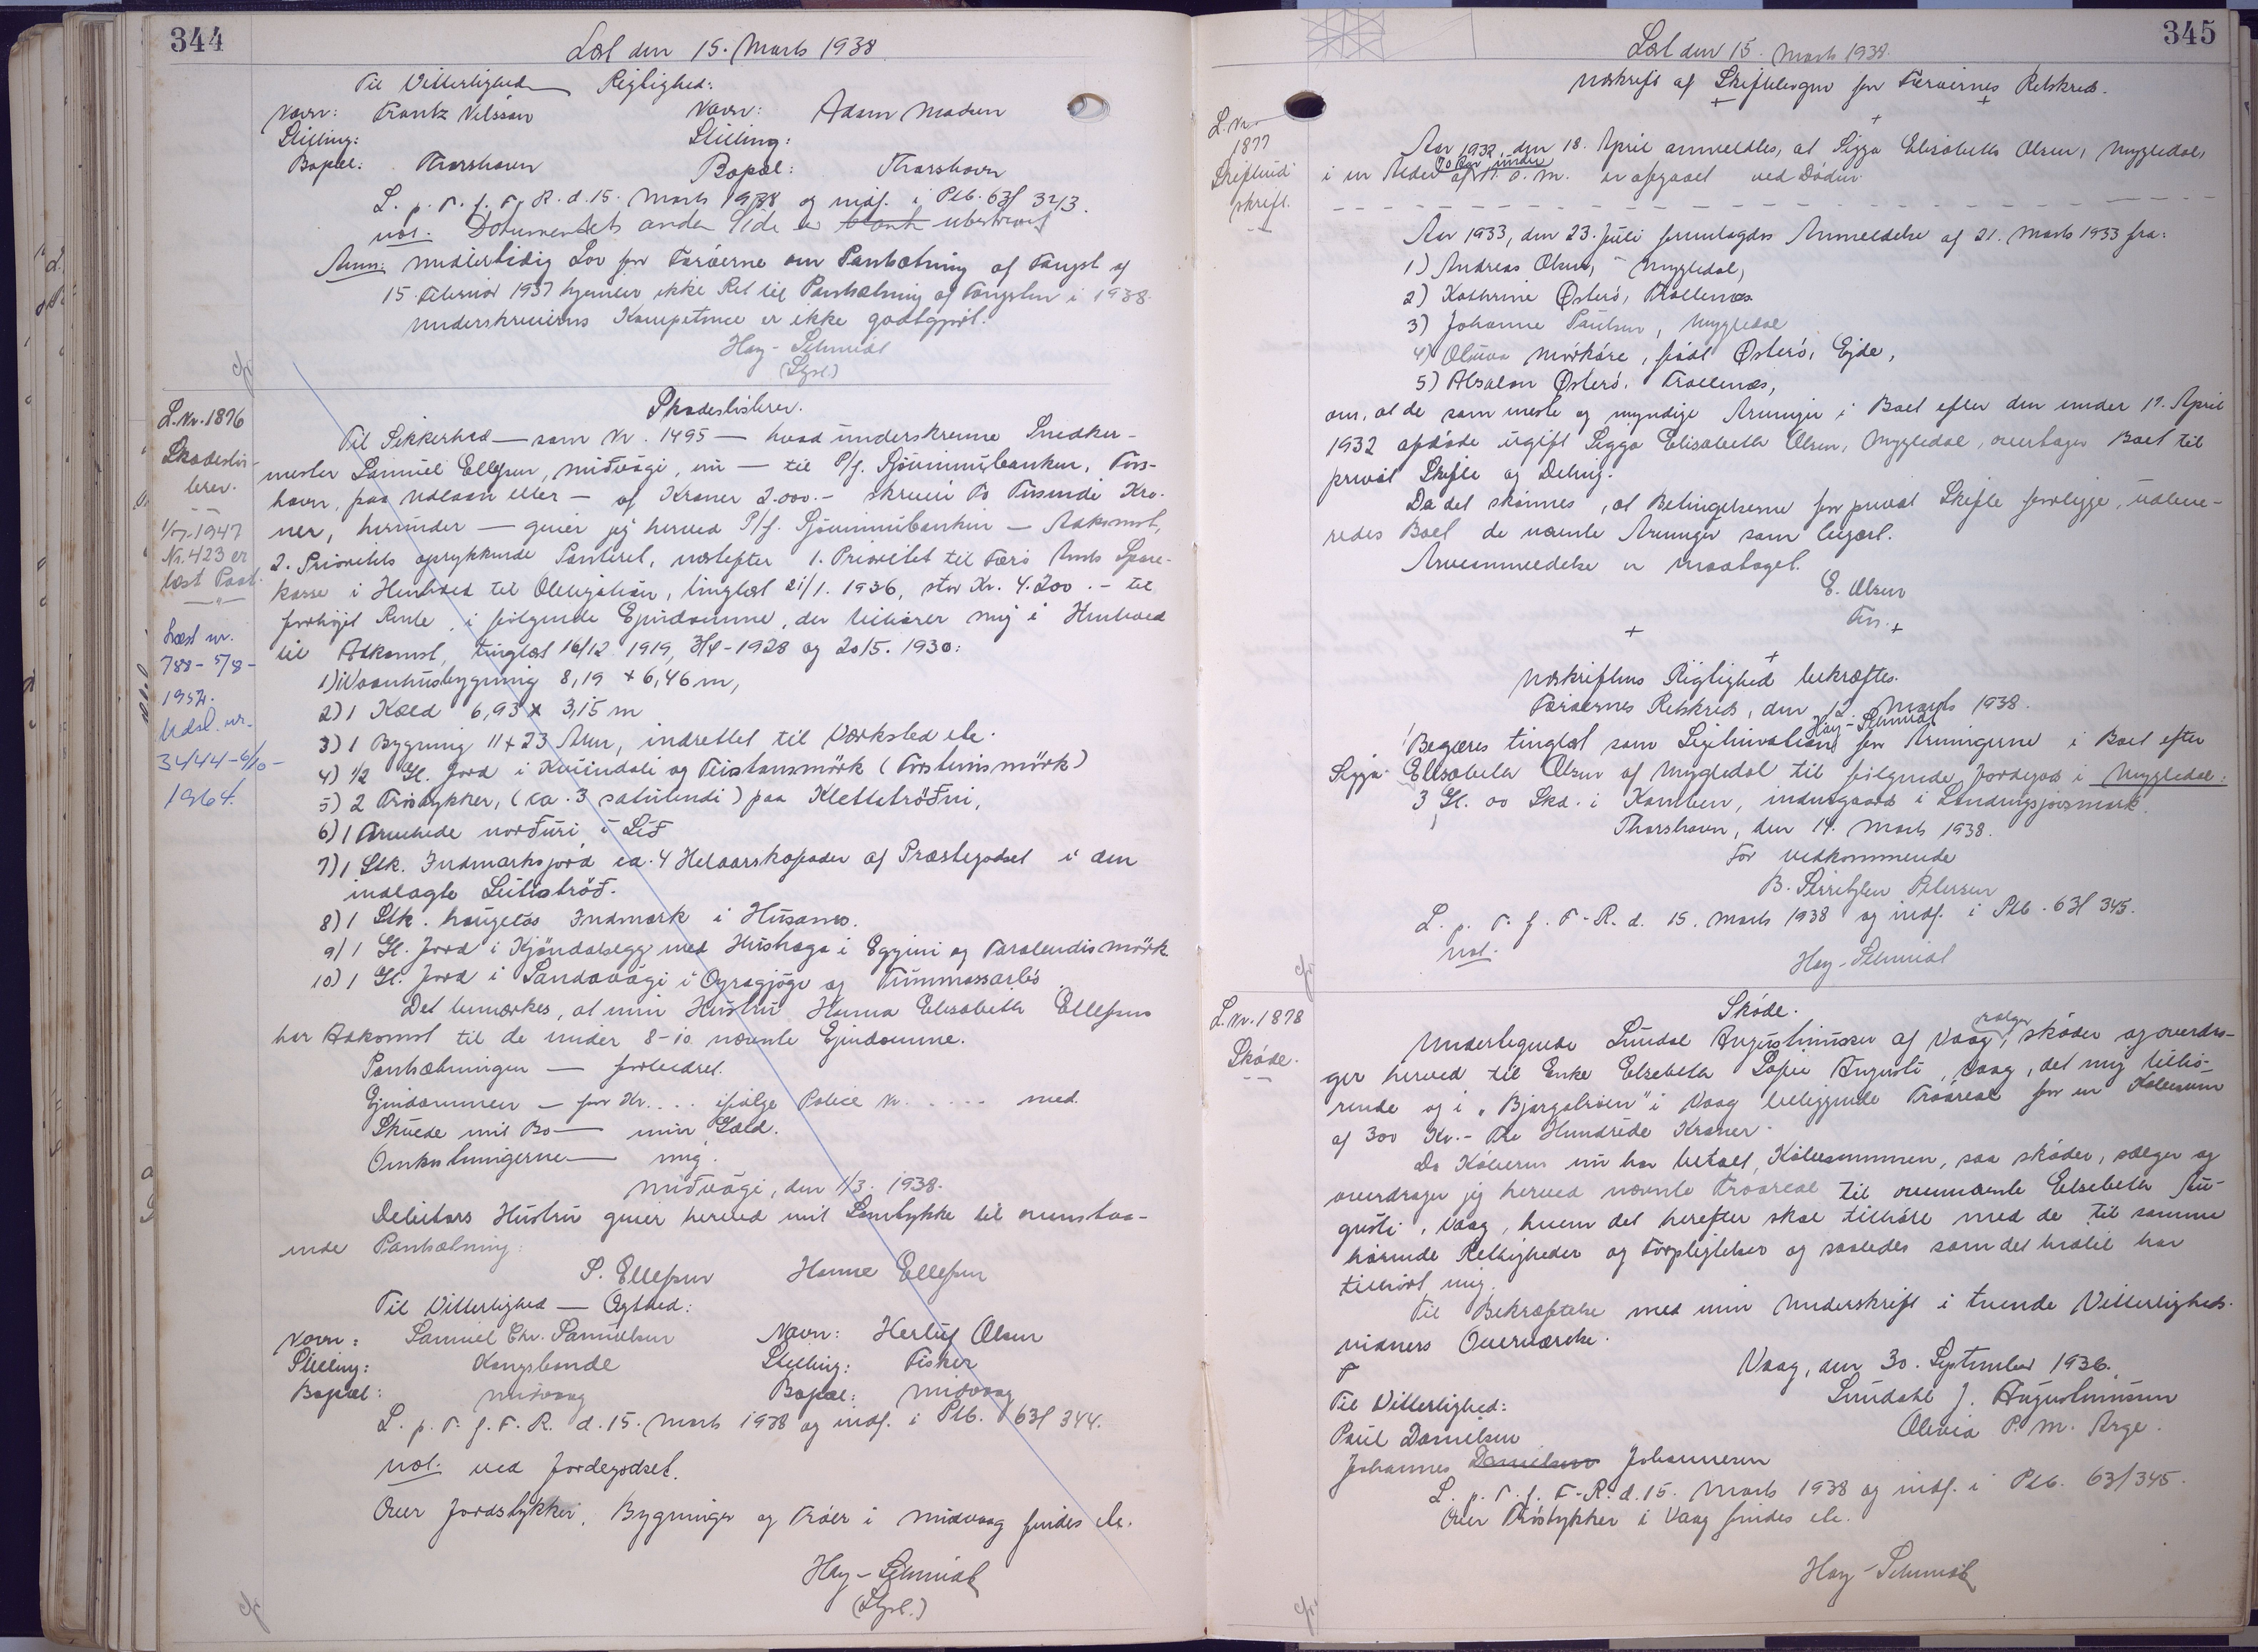 344
Læst den 15. Marts 1938
Til Vitterlighed Rigtighed:
Navn: Frantz Nilsson Navn: Adam Madsen
Stilling: Stilling:
Bopæl: Thorshavn Bopæl: Thorshavn
L. p. T. f. F. R. d. 15. Marts 1938 og indf. i Ptb. 63f 343.
not. Dokumentets anden Side er blank ubeskrevet
Anm: Midlertidig Lov for Færøerne om Pantsætning af Fangst af
15. Februar 1937 hjemler ikke Ret til Pantsætning af Fangsten i 1938.
Underskrivernes Kompetence er ikke godtgjort.
Hay-Schmidt
(Styrl.)
L. Nr. 1876
Skadeslis-
brev.
1/7-1947
Nr. 423 er
læst Paat.
Læst nr.
788-5/8-
1952.
Udsl. nr.
3444-6/10-
1964.
Skadeslisbrev.
Til Sikkerhed — som Nr. 1495 — hvad underskrevne Snedker-
mester Samuel Ellefsen, Miðvági, nu — til P/f. Sjóvinnubankin, Tórs-
havn, paa Udlaan eller — af Kroner 2.000.- skriver To Tusinde Kro-
ner, herunder — giver jeg herved P/f. Sjóvinnubankin — Adkomst,
2. Prioritets oprykkende Panteret, næstefter 1. Prioritet til Færø Amts Spare-
kasse i Henhold til Obligation, tinglæst 21/1. 1936, stor Kr. 4.200.- til
forhøjet Rente, i følgende Ejendomme, der tilhører mig i Henhold
til Adkomst, tinglæst 16/12 1919, 3/4-1928 og 20/5. 1930:
1) 1 Vaanhusbygning 8,19 + 6,46 m,
2) 1 Kæld 6,93 x 3,15 m
3) 1 Bygning 11+23 Alen, indrettet til Værksted etc.
4) 1/2 Gl. Jord i Kvíindali og Teistansmørk (Torsteinsmørk)
5) 2 Trøstykker, (ca. 3 satulendi) paa Klettatrøðni,
6) 1 Torvehede norðuri í Líð
7) 1 Stk. Indmarksjord ca. 4 Helaarskofoder af Præstegodset i den
indlagte Leitistrøð.
8) 1 Stk. haugeløs Indmark i Husanes.
9) 1 Gl. Jord i Kjøndalsegg med Hushaga i Eggini og Taralendismørk
10) 1 Gl. Jord i Sandavági i Oyragjógv og Tummassarbø
Det bemærkes, at min Hustru Hanna Elisabeth Ellefsen
har Adkomst til de under 8-10 nævnte Ejendomme.
Pantsætningen — forbedret.
Ejendommen — for Kr. .... ifølge Police Nr. ..... med
Skvede mit Bo — min Gæld.
Omkostningerne — mig.
Miðvági, den 1/3. 1938.
Debitors Hustru giver herved mit Samtykke til ovenstaa-
ende Pantsætning:
S. Ellefsen Hanne Ellefsen
Til Vitterlighed — Ægthed:
Navn: Samuel Chr. Samuelsen Navn: Herluf Olsen
Stilling: Kongsbonde Stilling: Fisker
Bopæl: Midvaag Bopæl: Midvaag
L. p. T. f. F. R. d. 15. Marts 1938 og indf. i Ptb. 63f 344.
not. ved Jordegodset.
Over Jordstykker, Bygninger og Trøer i Midvaag findes etc.
Hay-Schmidt
(Styrl.)
345
Læst den 15. Marts 1938.
Udskrift af Skiftebogen for Færøernes Retskreds.
L. Nr.
1877
Skifteud-
skrift.
Aar 1932, den 18. April anmeldtes, at Sigga Elisabeth Olsen, Mygledal,
i en Alder af 70 Aar under 17. d. M. er afgaaet ved Døden.
Aar 1933, den 23. Juli fremlagdes Anmeldelse af 21. Marts 1933 fra:
1) Andreas Olsen, Mygledal,
2) Kathrine Østerø, Trøllenæs
3) Johanne Paulsen, Mygledal
4) Oluva Mørkøre, født Østerø, Ejde,
5) Absalon Østerø, Trøllenæs,
om, at de som eneste og myndige Arvinger i Boet efter den under 17. April
1932 afdøde ugift Sigga Elisabeth Olsen, Mygledal, overtager Boet til
privat Skifte og Deling.
Da det skønnes, at Betingelserne for privat Skifte foreligge, udleve-
redes Boet de nævnte Arvinger som begært.
Arveanmeldelse er modtaget.
E. Olsen
Fm.
Udskriftens Rigtighed bekræftes.
Færøernes Retskreds, den 12. Marts 1938.
Hay-Schmidt
Begæres tinglæst som Legitimation for Arvingerne i Boet efter
Sigga Elisabeth Olsen af Mygledal til følgende Jordegods i Mygledal:
3 Gl. 00 Skd. i Kamben, indengaards i Landingsjorsmark.
Thorshavn, den 14. Marts 1938.
For Vedkommende
Petersen
L. p. T. f. F-R. d. 15. Marts 1938 og indf. i Ptb. 63f 345.
not.
Hay-Schmidt
L. Nr. 1878
Skøde.
Skøde.
Undertegnede Sundal Augustinussen af Vaag, sælger, skøder og overdra-
ger herved til Enke Elsebeth Sofie Augusti, Vaag, det mig tilhø-
rende og i "Bjargatrøen" i Vaag beliggende Trøareal for en Købesum
af 300 Kr.- Tre Hundrede Kroner.
Da Køberen nu har betalt Købesummen, saa skøder, sælger og
overdrager jeg herved nævnte Trøareal til ovennævnte Elsebeth Au-
gusti, Vaag, hvem det herefter skal tilhøre med de til samme
hørende Rettigheder og Forpligtelser og saaledes som det hidtil har
tilhørt mig.
Til Bekræftelse med min Underskrift i tvende Vitterligheds-
vidners Overværelse.
Vaag, den 30. September 1936.
Til Vitterlighed: Sundahl J. Augustinussen
Paul Danielsen Olivia P. M. Arge.
Johannes Danielsen Johannesen
L. p. T. f. F-R. d. 15. Marts 1938 og indf. i Ptb. 63f 345.
Over Trøstykker i Vaag findes etc.
Hay-Schmidt